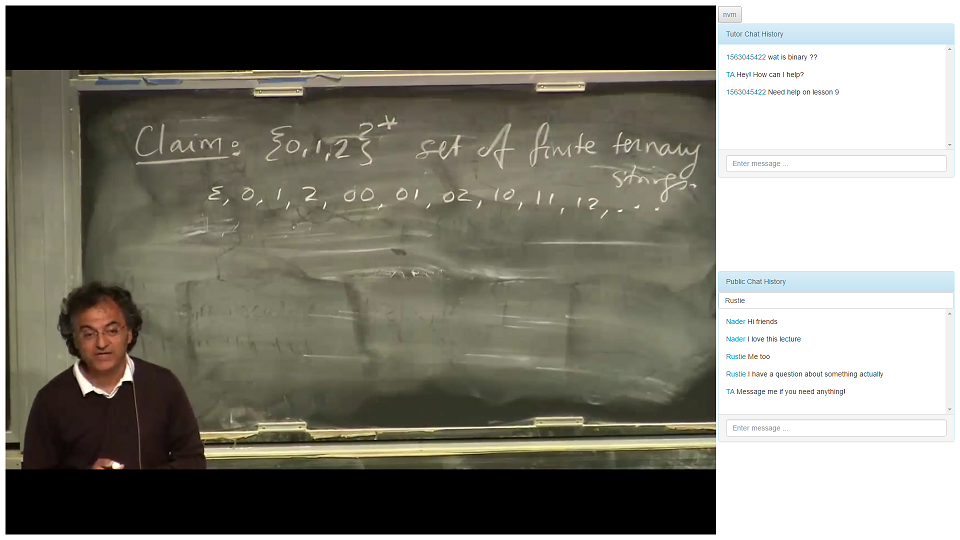 Claim: {0,1,2}* set of finite ternary
strings.
ε, 0, 1, 2, 00, 01, 02, 10, 11, 12, ...
nvm
Tutor Chat History
1563045422 wat is binary ??
TA Hey! How can I help?
1563045422 Need help on lesson 9
Enter message ...
Public Chat History
Rustie
Nader Hi friends
Nader I love this lecture
Rustie Me too
Rustie I have a question about something actually
TA Message me if you need anything!
Enter message ...